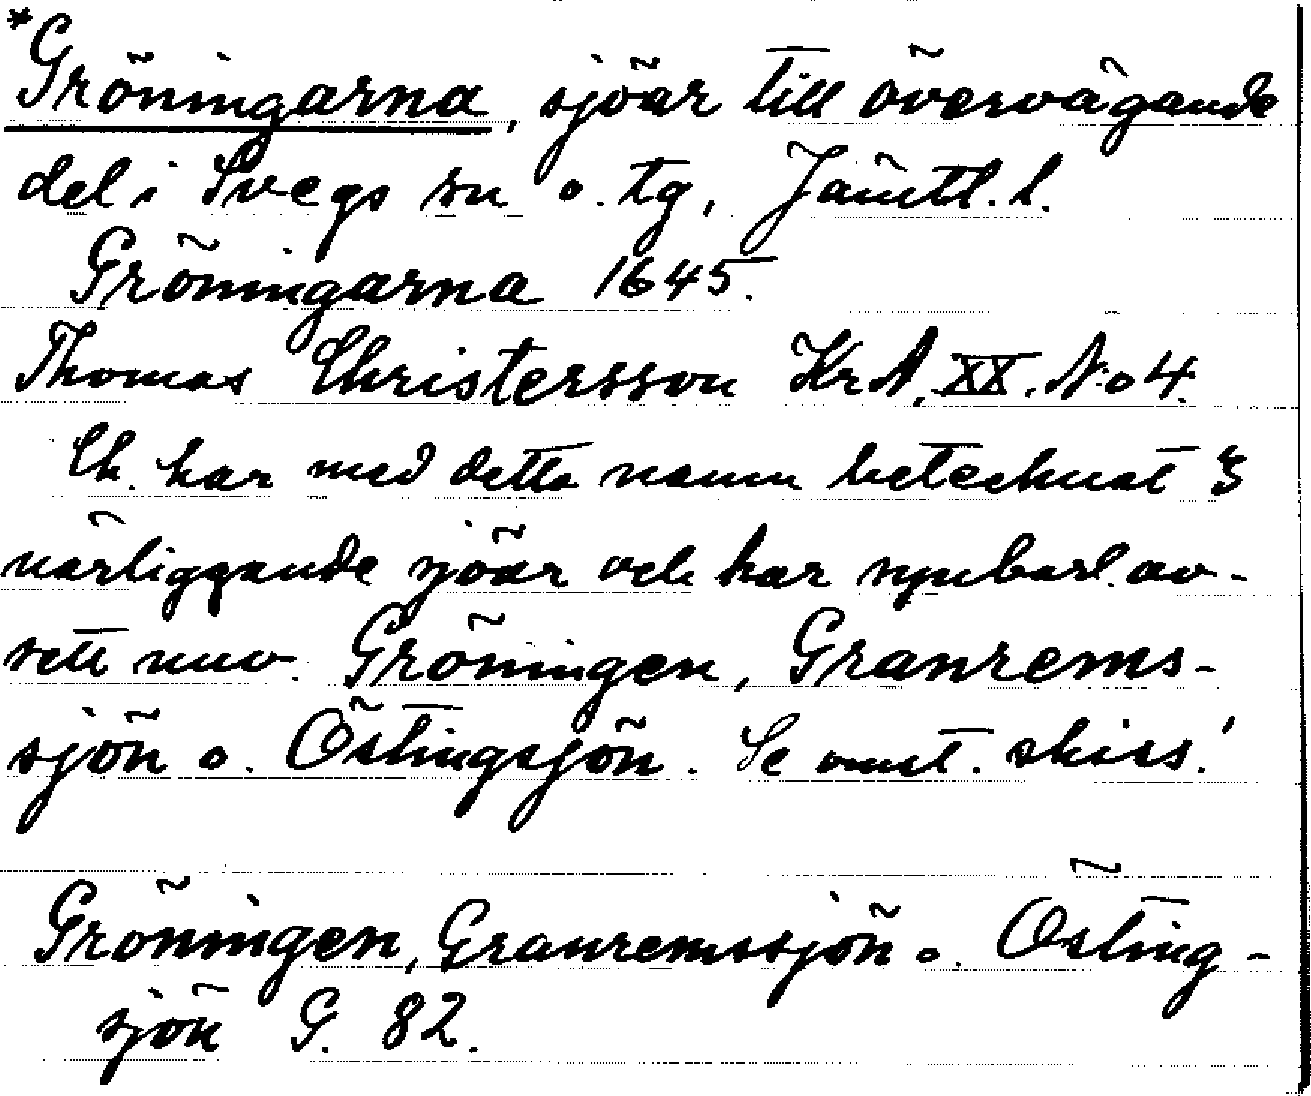 *Gröningarna, sjöar till övervägande
del i Svegs sn o. tg, Jämtl. l.
Gröningarna 1645.
Thomas Christersson Kr A. XX. No 4.
Ch. har med detta namn betecknat 3
närliggande sjöar och har synbarl. av-
sett nuv. Gröningen, Granrems-
sjön o. Östingsjön. Se omst. skiss!
Gröningen, Granremssjön o. Östing-
sjön G. 82.